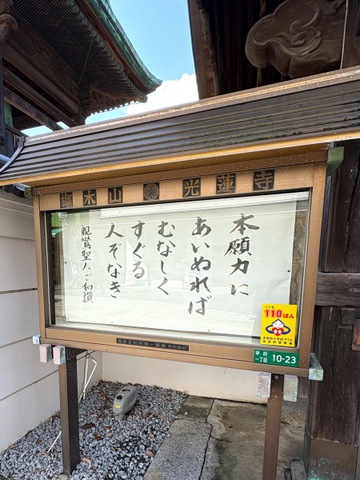 光蓮寺
本願力に
あいぬれば
むなしく
すぐる
人ぞなき
親鸞聖人 和讃
こども
110ばん
10-23